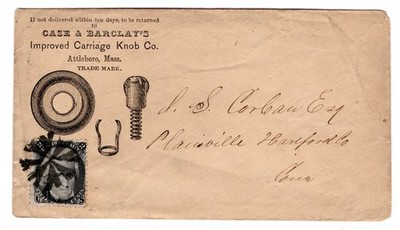 If not delivered within ten days, to be returned
to
CASE & BARCLAY'S
Improved Carriage Knob Co.
Attleboro, Mass.
TRADE MARK.
J. S. Corban Esq
Plainville Hartford Co
Conn